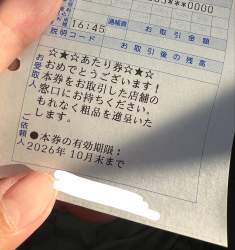 ***0000
通帳残
お取引金額
16:45
説明コード
お取引後の残高
☆★☆あたり券☆★☆
おめでとうございます!
本券をお取引した店舗の
窓口にお持ちください。
もれなく粗品を進呈いた
します。
●本券の有効期限:
2026年10月末まで
お受取人
ご依頼人